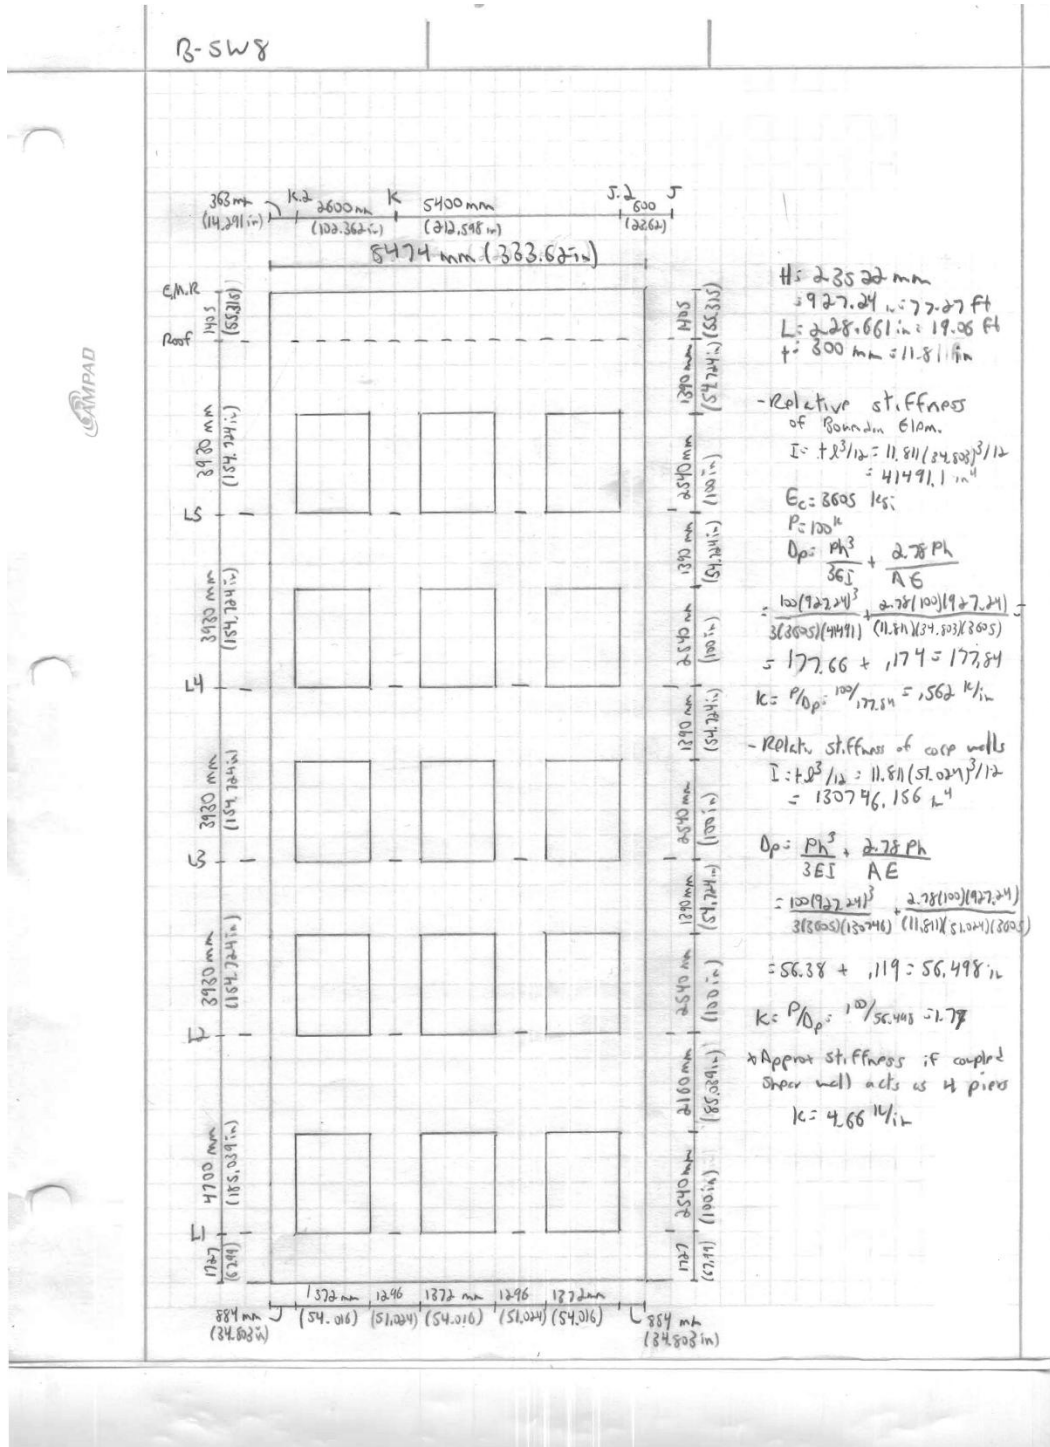 B-SW8
363mm K.2 2600mm K 5400mm J.2 600 J
(14.291in) (102.362in) (212.598in) (23.62)
8474 mm (333.62in)
E.M.R
1405
(55.315)
Roof
3930 mm
(154.724in)
L5
3930 mm
(154.724in)
L4
3930 mm
(154.724in)
L3
3930 mm
(154.724in)
L2
4700 mm
(185.039in)
L1
1727
(67.99)
1405
(55.315)
1390mm
(54.724in)
2540mm
(100in)
1390 mm
(54.724in)
2540 mm
(100in)
1390 mm
(54.724in)
2540mm
(100in)
1390mm
(54.724in)
2540 mm
(100in)
2160 mm
(85.039in)
2540mm
(100in)
1727
(67.99)
1372mm 1296 1372 mm 1296 1372mm
884 mm (54.016) (51.024) (54.016) (51.024) (54.016) 884 mm
(34.803in) (34.803in)
H= 23522 mm
=927.24 in=77.27 ft
L= 228.661in= 19.06 ft
t= 300 mm =11.811 in
-Relative stiffness
of Boundin Elem.
I= tl³/12 = 11.811(34.803)³/12
= 41491.1 in⁴
Ec= 3605 ksi
P=100ᵏ
Dp= Ph³/3EI + 2.78 Ph/AE
= 100(927.24)³/3(3605)(41491) + 2.78(100)(927.24)/(11.811)(34.803)(3605) =
= 177.66 + .174 = 177.84
K= P/Dp= 100/177.84 = .562 k/in
- Relativ stiffness of core walls
I=tl³/12 = 11.811(51.024)³/12
= 130746.156 in⁴
Dp= Ph³/3EI + 2.78 Ph/AE
= 100(927.24)³/3(3605)(130746) + 2.78(100)(927.24)/(11.811)(51.024)(3605)
= 56.38 + .119 = 56.498 in
K= P/Dp= 100/56.498 =1.77
*Approx stiffness if coupled
shear wall acts as 4 piers
K= 4.66 k/in
AMPAD